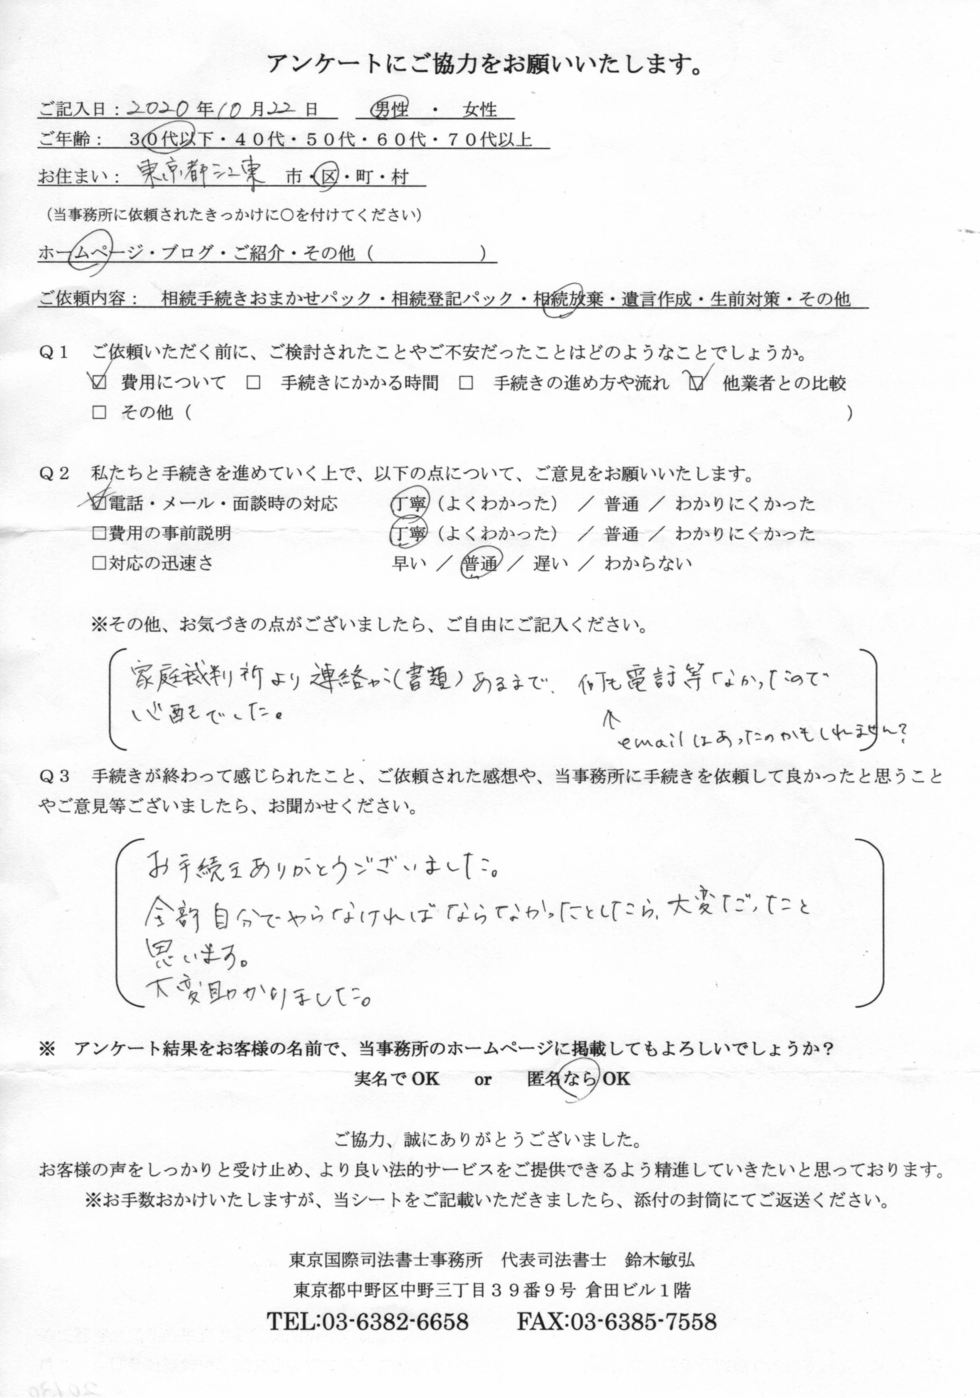 アンケートにご協力をお願いいたします。
ご記入日：2020年10月22日　男性　・　女性
ご年齢：　３０代以下・４０代・５０代・６０代・７０代以上
お住まい：　東京都江東　市・区・町・村
（当事務所に依頼されたきっかけに○を付けてください）
ホームページ・ブログ・ご紹介・その他（　　　　　　）
ご依頼内容：　相続手続きおまかせパック・相続登記パック・相続放棄・遺言作成・生前対策・その他
Ｑ１　ご依頼いただく前に、ご検討されたことやご不安だったことはどのようなことでしょうか。
☑　費用について　□　手続きにかかる時間　□　手続きの進め方や流れ　☑　他業者との比較
□　その他（　　　　　　　　　　）
Ｑ２　私たちと手続きを進めていく上で、以下の点について、ご意見をお願いいたします。
☑電話・メール・面談時の対応　丁寧（よくわかった）　／　普通　／　わかりにくかった
□費用の事前説明　丁寧（よくわかった）　／　普通　／　わかりにくかった
□対応の迅速さ　早い　／　普通　／　遅い　／　わからない
※その他、お気づきの点がございましたら、ご自由にご記入ください。
家庭裁判所より連絡が(書類)あるまで、何も電話等なかったので
心配でした。
↑emailはあったのかもしれません?
Ｑ３　手続きが終わって感じられたこと、ご依頼された感想や、当事務所に手続きを依頼して良かったと思うこと
やご意見等ございましたら、お聞かせください。
お手続をありがとうございました。
全部自分でやらなければならなかったとしたら、大変だったこと
思います。
大変助かりました。
※　アンケート結果をお客様の名前で、当事務所のホームページに掲載してもよろしいでしょうか？
実名でOK　or　匿名ならOK
ご協力、誠にありがとうございました。
お客様の声をしっかりと受け止め、より良い法的サービスをご提供できるよう精進していきたいと思っております。
※お手数おかけいたしますが、当シートをご記載いただきましたら、添付の封筒にてご返送ください。
東京国際司法書士事務所　代表司法書士　鈴木敏弘
東京都中野区中野三丁目３９番９号 倉田ビル１階
TEL:03-6382-6658　FAX:03-6385-7558